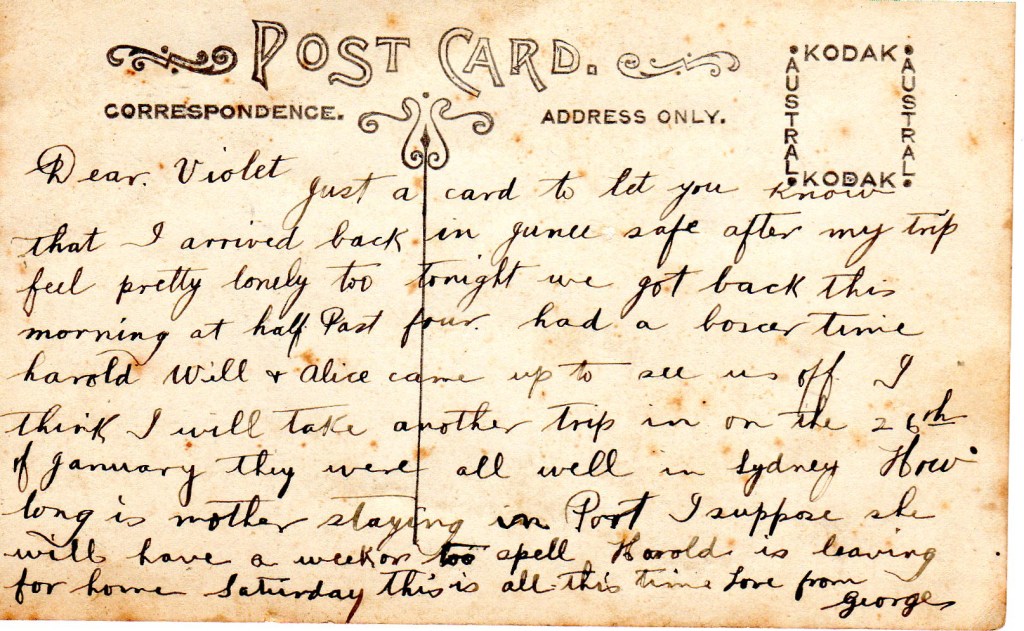 POST CARD.
CORRESPONDENCE.
ADDRESS ONLY.
KODAK
AUSTRAL
AUSTRAL
KODAK
Dear. Violet
Just a card to let you know
that I arrived back in Junee safe after my trip
feel pretty lonely too tonight we got back this
morning at half Past four. had a boscer time
harold Will & Alice came up to see us off. I
think I will take another trip in on the 26th
of January they were all well in Sydney How
long is mother staying in Port I suppose she
will have a week or too spell Harold is leaving
for home Saturday this is all this time Love from
George